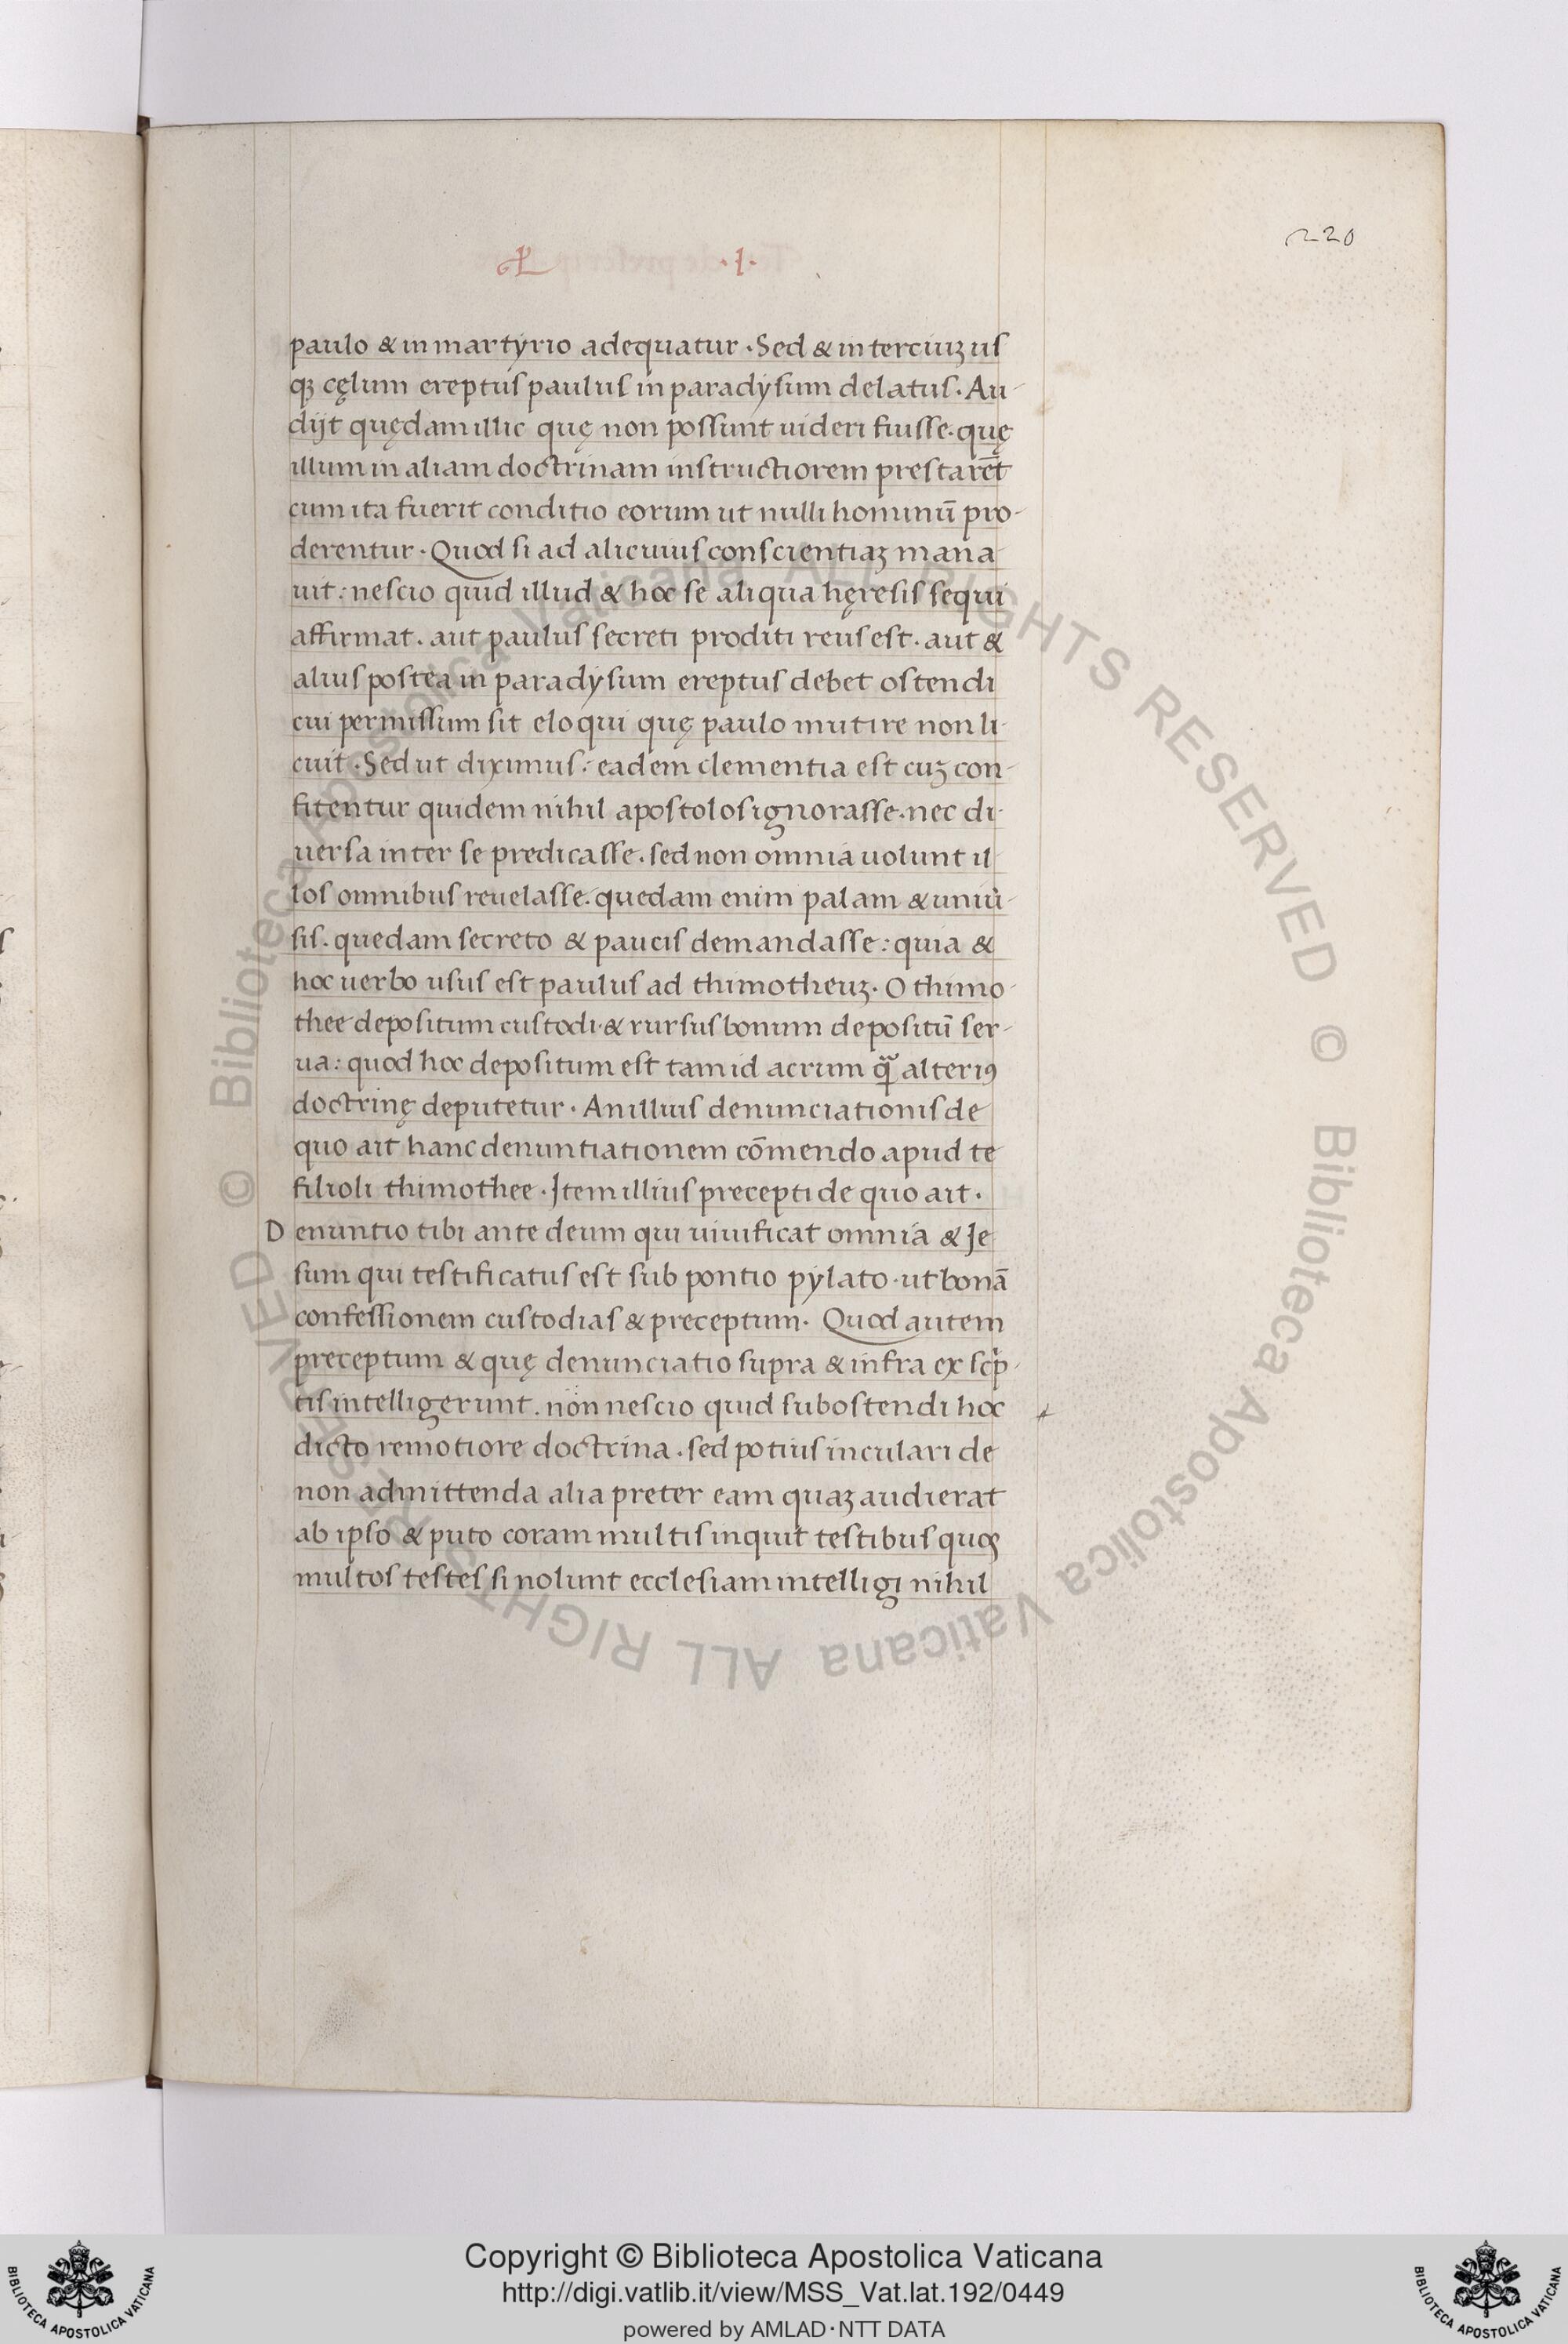 220
L .I.
paulo & in martyrio adequatur · Sed & in terciuꝫ us
qꝫ cęlum ereptus paulus in paradysum delatus · Au-
dijt quędam illic quę non possunt uideri fuisse · quę
illum in aliam doctrinam instructiorem prestarēt
cum ita fuerit conditio eorum ut nulli hominū pro-
derentur · Quod si ad alicuius conscientiaꝫ mana-
uit : nescio quid illud & hoc se aliqua hęresis sequi
affirmat . aut paulus secreti proditi reus est . aut &
alius postea in paradysum ereptus debet ostendi
cui permissum sit eloqui quę paulo mutire non li-
cuit · Sed ut diximus : eadem clementia est cuꝫ con-
fitentur quidem nihil apostolos ignorasse . nec di-
uersa inter se predicasse . sed non omnia uolunt il
los omnibus reuelasse . quedam enim palam & uniu̇-
sis . quedam secreto & paucis demandasse : quia &
hoc uerbo usus est paulus ad thimotheuꝫ · O thimo-
thee depositum custodi · & rursus bonum depositū ser-
ua : quod hoc depositum est tam id acrum ꝗ̃ alteriꝰ
doctrinę deputetur · An illius denunciationis de
quo ait hanc denuntiationem cōmendo apud te
filioli thimothee · Item illius precepti de quo ait ·
Denuntio tibi ante deum qui uiuificat omnia & Je
sum qui testificatus est sub pontio pylato · ut bonā
confessionem custodias & preceptum · Quod autem
preceptum & quę denunciatio supra & infra ex scͥp-
tis intelligerunt . non nescio quid subostendi hoc
dicto remotiore doctrina . sed potius inculari de
non admittenda alia preter eam quaꝫ audierat
ab ipso & puto coram multis inquit testibus quos
multos testes si nolunt ecclesiam intelligi nihil
© Biblioteca Apostolica Vaticana ALL RIGHTS RESERVED © Biblioteca Apostolica Vaticana ALL RIGHTS RESERVED
Copyright © Biblioteca Apostolica Vaticana
http://digi.vatlib.it/view/MSS_Vat.lat.192/0449
powered by AMLAD·NTT DATA
BIBLIOTECA APOSTOLICA VATICANA
BIBLIOTECA APOSTOLICA VATICANA